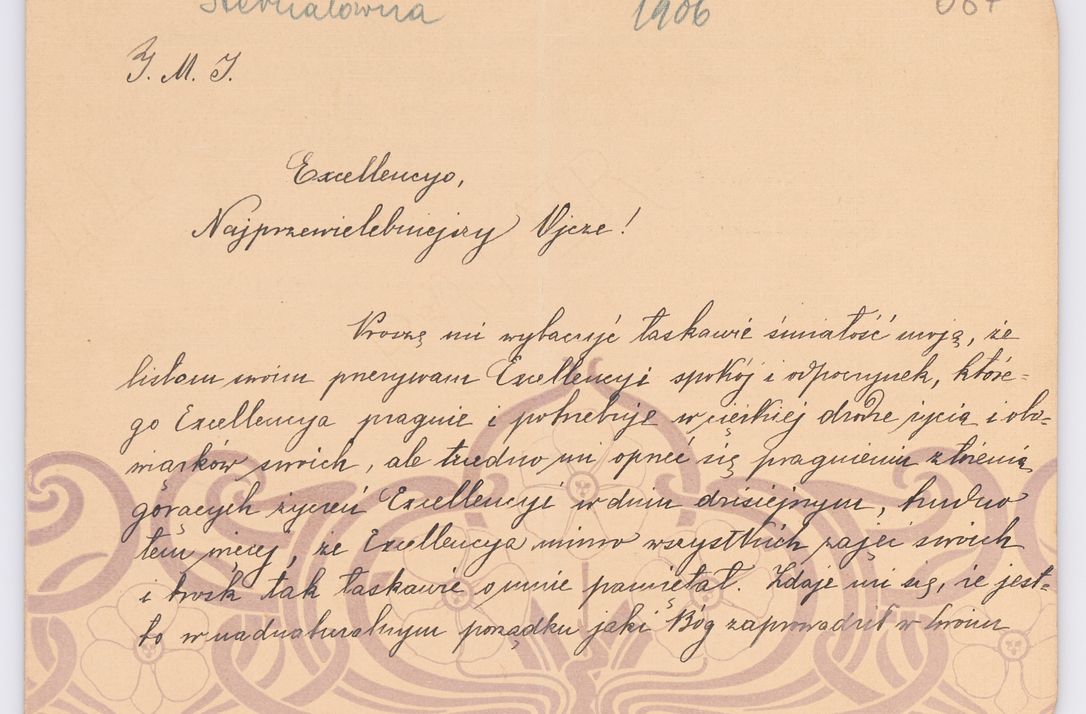 1906
J. M. J.
Excellencyo,
Najprzewielebniejszy Ojcze!
Proszę mi wybaczyć łaskawie śmiałość moją, że
listem moim przerywam Excellencyi spokój i odpoczynek, które-
go Excellencya pragnie i potrzebuje w ciężkiej drodze życia i obo-
wiązków swoich, ale trudno mi oprzeć się pragnieniu złożenia
gorących życzeń Excellencyi w dniu dzisiejszym, trudno
tem więcej, że Excellencya mimo wszystkich zajęć swoich
i trosk tak łaskawie o mnie pamiętał. Zdaje mi się, że jest-
to w nadnaturalnym porządku jaki Bóg zaprowadził w swoim